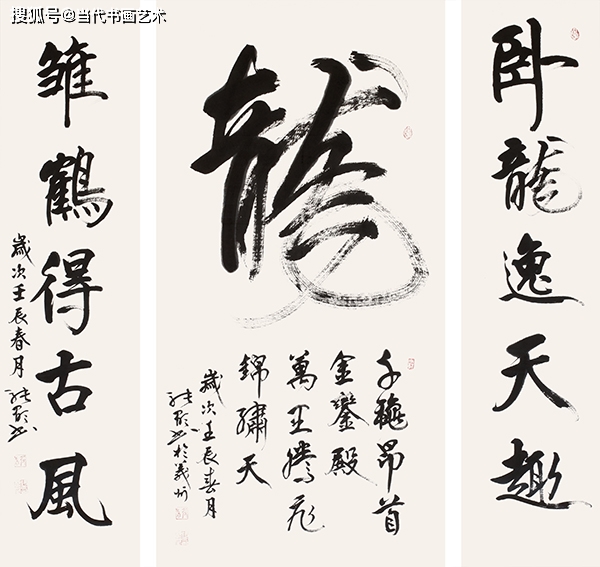 搜狐号@当代书画艺术
卧龍逸天趣
龍
千穐昂首
金鑾殿
萬里騰飛
錦繡天
歲次壬辰春月
雏鶴得古風
歲次壬辰春月